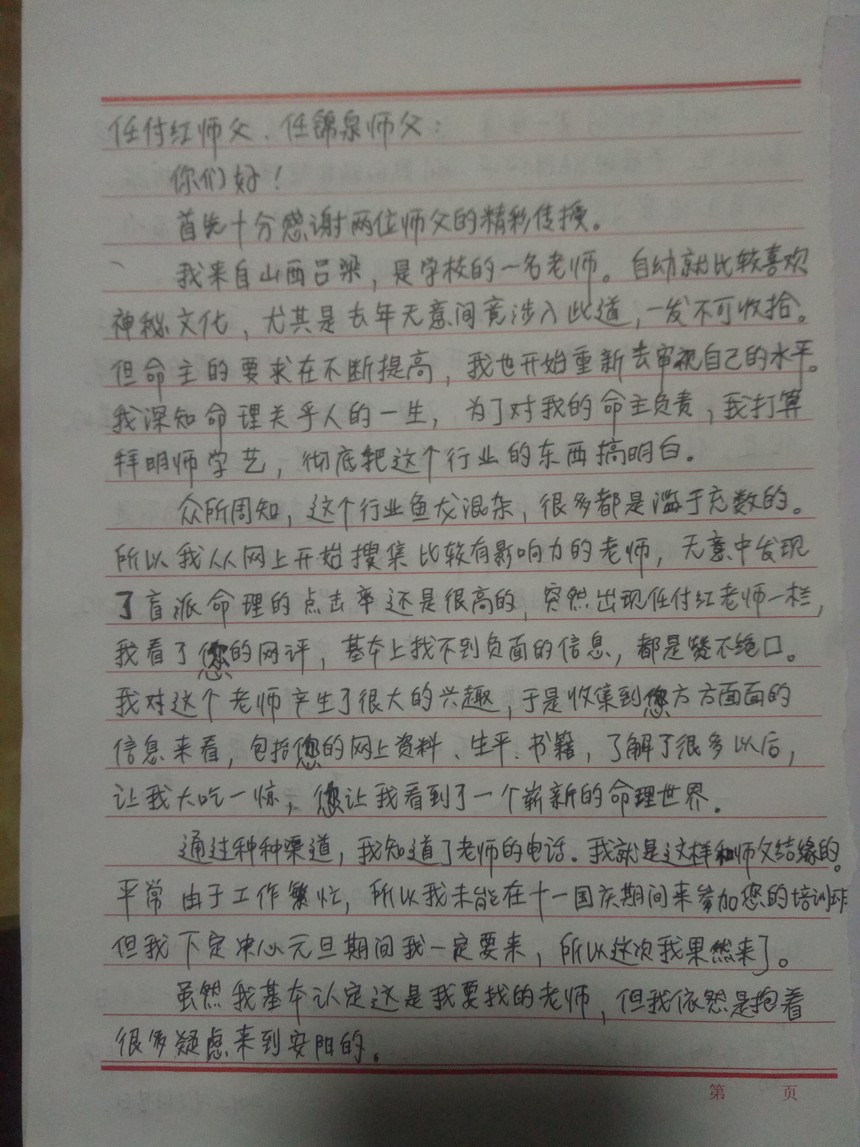 任付红师父、任锦泉师父:
你们好!
首先十分感谢两位师父的精彩传授。
我来自山西吕梁,是学校的一名老师。自幼就比较喜欢
神秘文化,尤其是去年无意间竟涉入此道,一发不可收拾。
但命主的要求在不断提高,我也开始重新去审视自己的水平。
我深知命理关乎人的一生,为了对我的命主负责,我打算
拜明师学艺,彻底把这个行业的东西搞明白。
众所周知,这个行业鱼龙混杂,很多都是滥于充数的。
所以我从网上开始搜集比较有影响力的老师,无意中发现
了盲派命理的点击率还是很高的,突然出现任付红老师一栏,
我看了您的网评,基本上找不到负面的信息,都是赞不绝口。
我对这个老师产生了很大的兴趣,于是收集到您方方面面的
信息来看,包括您的网上资料、生平、书籍,了解了很多以后,
让我大吃一惊,您让我看到了一个崭新的命理世界。
通过种种渠道,我知道了老师的电话。我就是这样和师父结缘的。
平常由于工作繁忙,所以我未能在十一国庆期间来参加您的培训班
但我下定决心元旦期间我一定要来,所以这次我果然来了。
虽然我基本认定这是我要找的老师,但我依然是抱着
很多疑虑来到安阳的。
第 页